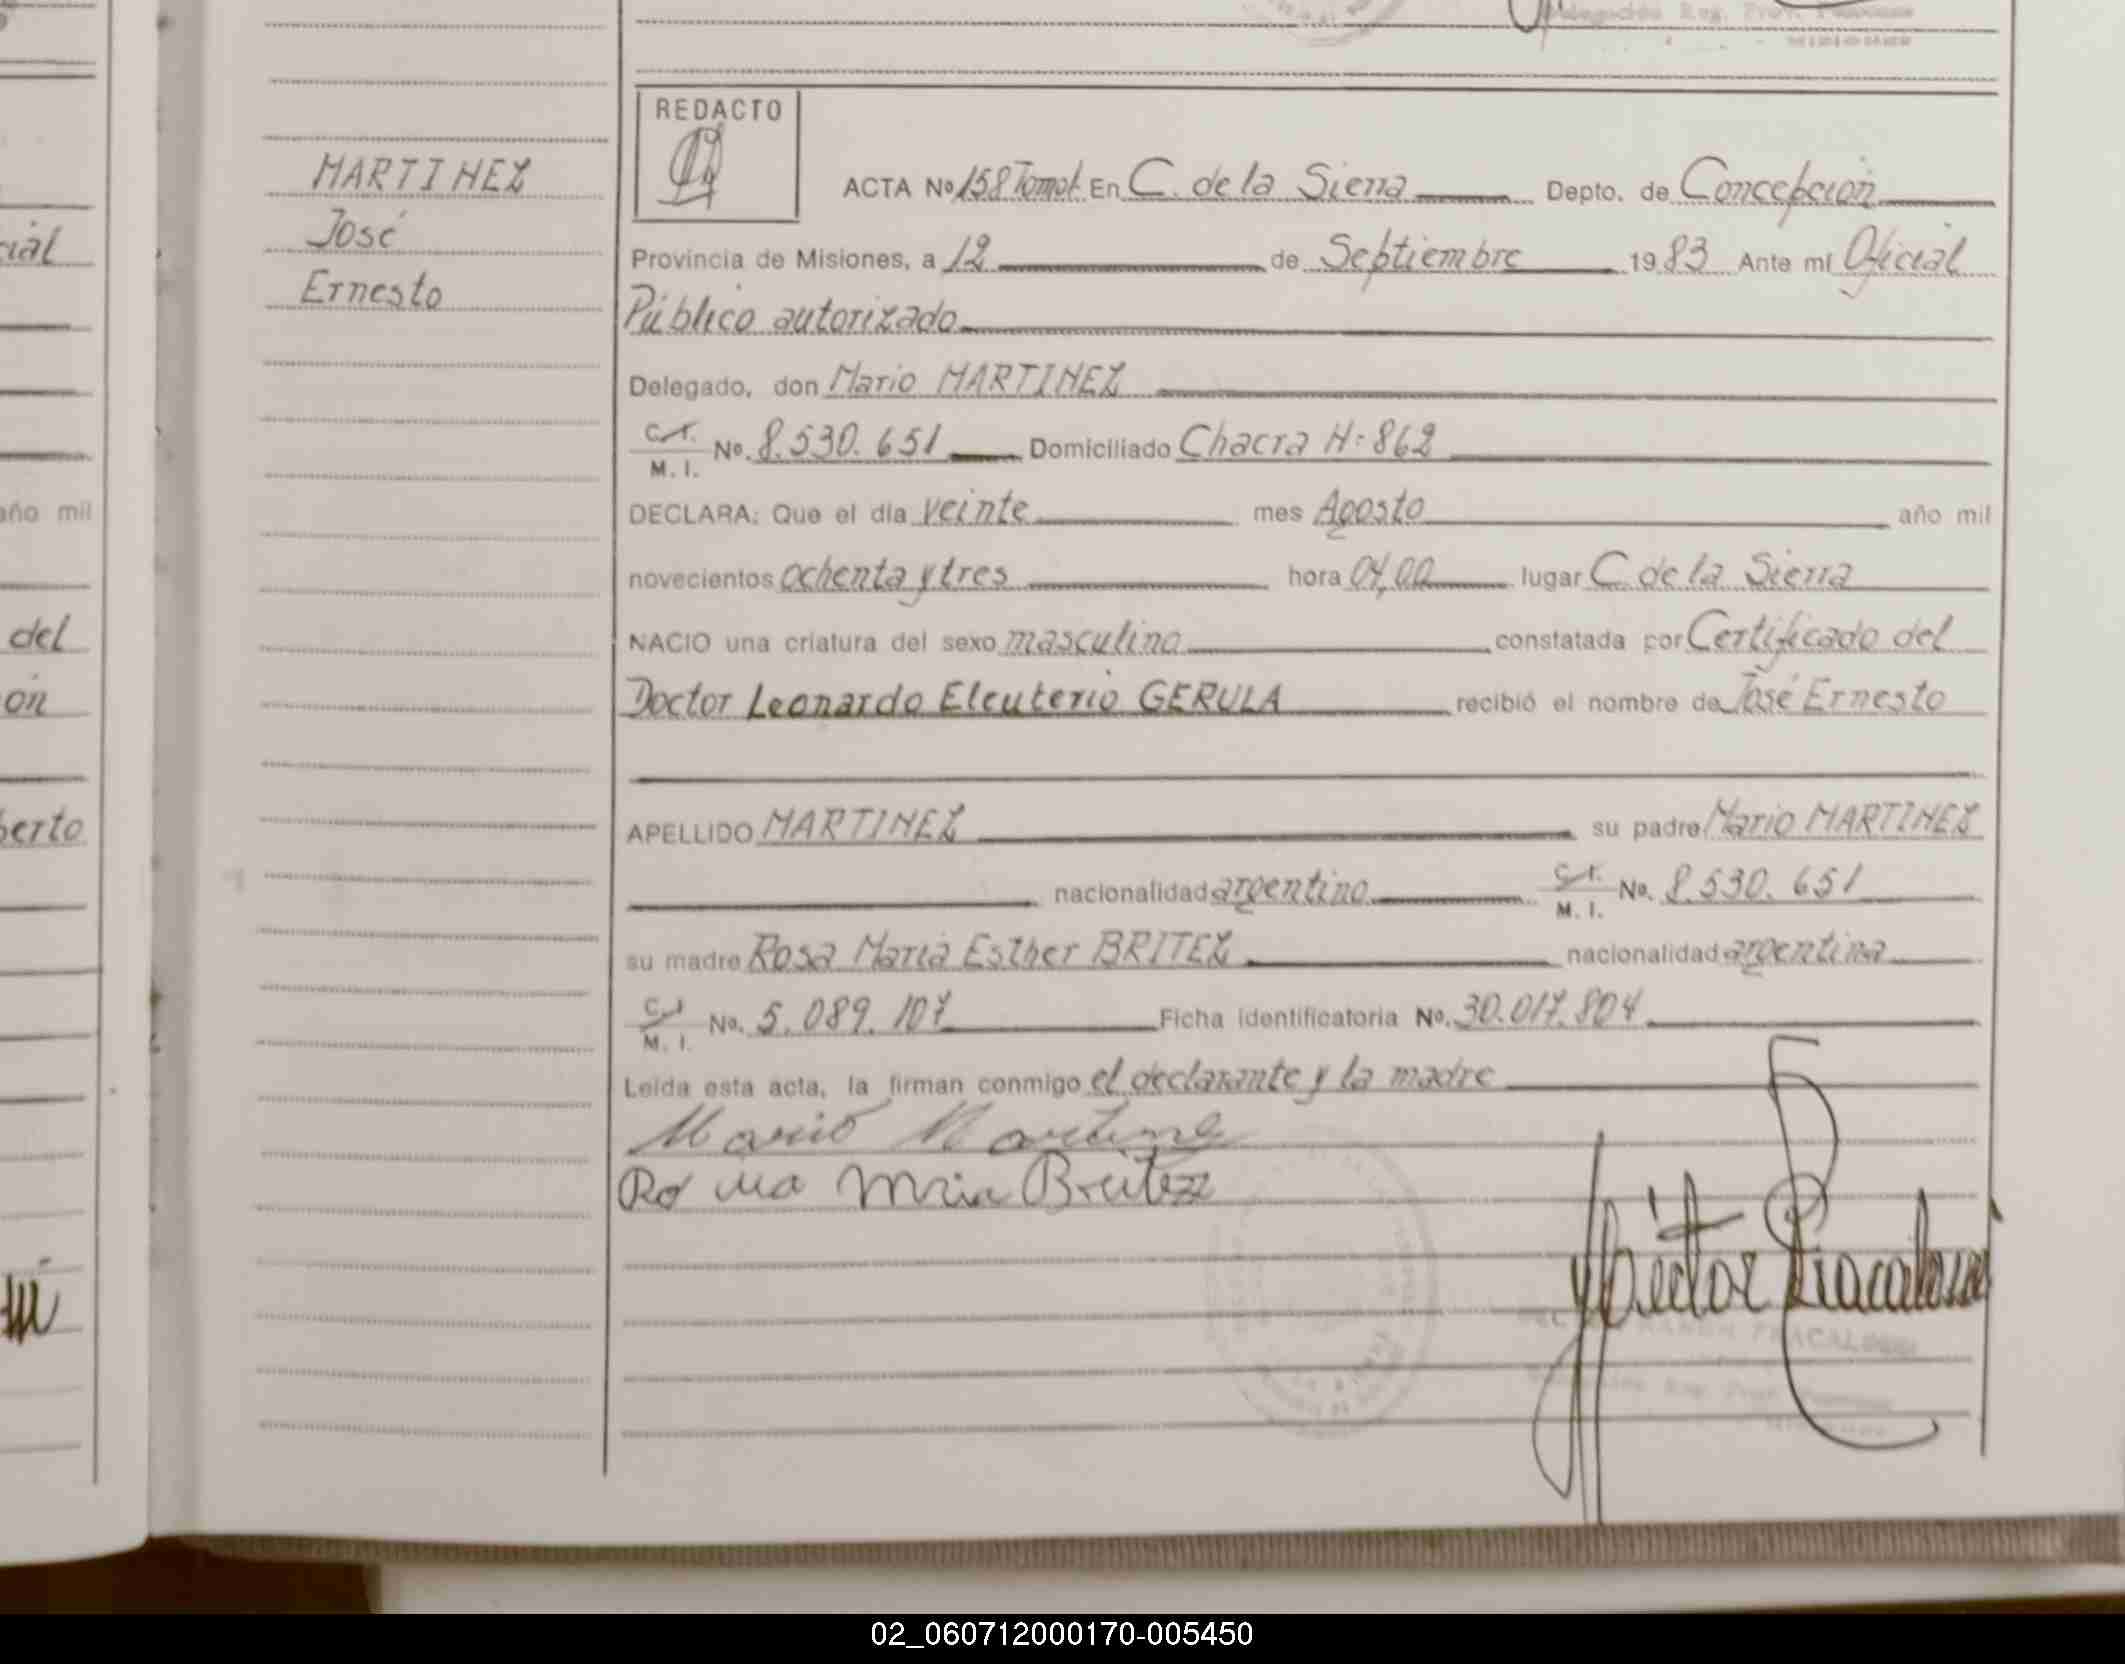 MARTINEZ
José
Ernesto
REDACTO
ACTA Nº 158 Tomo I En C. de la Sierra Depto. de Concepción
Provincia de Misiones, a 12 de Septiembre 1983 Ante mí Oficial
Público autorizado
Delegado, don Mario MARTINEZ
C.I. M. I. Nº. 8.530.651 Domiciliado Chacra N: 862
DECLARA: Que el día veinte mes Agosto año mil
novecientos ochenta y tres hora 04,00 lugar C. de la Sierra
NACIO una criatura del sexo masculino constatada por Certificado del
Doctor Leonardo Eleuterio GERULA recibió el nombre de José Ernesto
APELLIDO MARTINEZ su padre Mario MARTINEZ
nacionalidad argentino C.I. M. I. Nº. 8.530.651
su madre Rosa María Esther BRITEZ nacionalidad argentina
C.I. M. I. Nº. 5.089.107 Ficha identificatoria Nº. 30.017.804
Leída esta acta, la firman conmigo el declarante y la madre
Mario Martinez
cial
año mil
del
ón
berto
02_060712000170-005450